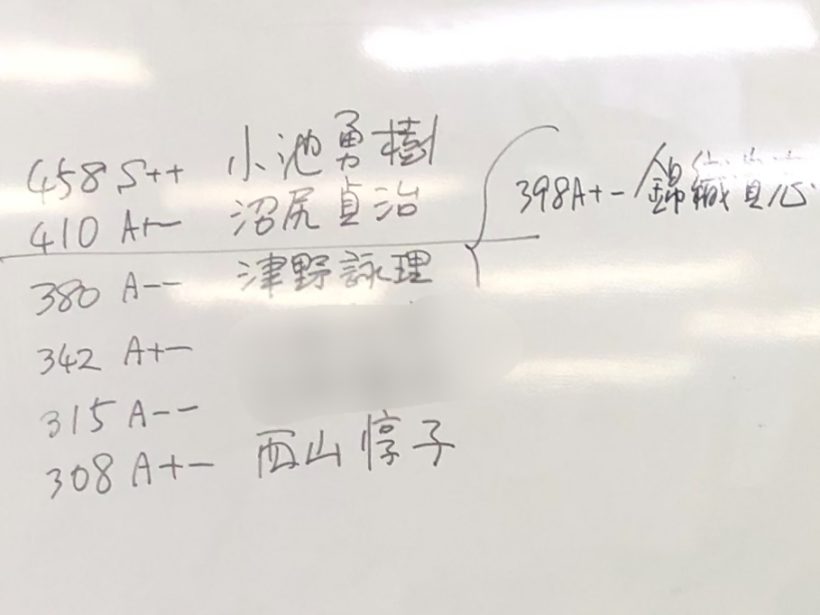 458 S++ 小池勇樹
410 A+- 沼尻貞治
398A+- 錦織
380 A-- 津野詠理
342 A+-
315 A--
308 A+- 西山惇子